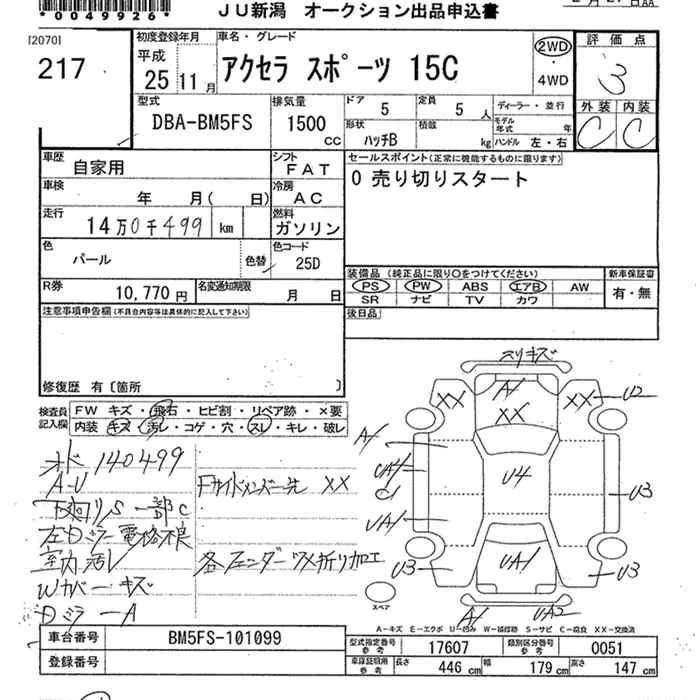 *0049926*
JU新潟 オークション出品申込書
[2070]
217
初度登録年月
平成
25 11月
車名・グレード
アクセラ スポーツ 15C
2WD
4WD
評価点
3
外装 内装
C C
型式
DBA-BM5FS
排気量
1500
CC
ドア
5
定員
5 人
形状
ハッチB
積載
kg
ディーラー・並行
モデル年式 年
ハンドル 左・右
車歴
自家用
シフト
FAT
車検
年 月( 日)
冷房
AC
走行
14万0千499 km
燃料
ガソリン
色
パール
色替
色コード
25D
R券
10,770円
名変通知期限
月 日
セールスポイント(正常に機能するものに限ります)
0 売り切りスタート
装備品(純正品に限り○をつけてください)
PS PW ABS エアB AW
SR ナビ TV カワ
新車保証書
有・無
後日品
注意事項申告欄(不具合内容等は具体的に記入して下さい)
修復歴 有〔箇所 〕
検査員記入欄
FW キズ・飛石・ヒビ割・リペア跡・×要
内装 キズ・汚レ・コゲ・穴・スレ・キレ・破レ
オド 140499
A-U
下廻りS 一部C
左Dミラー電格不良
室内汚レ
Wカバーキズ
DミラーA
Fサイドメンバー先 XX
各フェンダーツメ折り加工
スリキズ
A1
XX
XX
XX
U2
A1
UA1
U4
U3
UA1
U3
UA1
U3
A1
UA2
スペア
A-キズ E-エクボ U-凹み W-補修跡 S-サビ C-腐食 XX-交換済
車台番号
BM5FS-101099
登録番号
型式指定番号参考
17606
類別区分番号参考
0051
車庫証明用参考
長さ 446 cm
幅 179 cm
高さ 147 cm